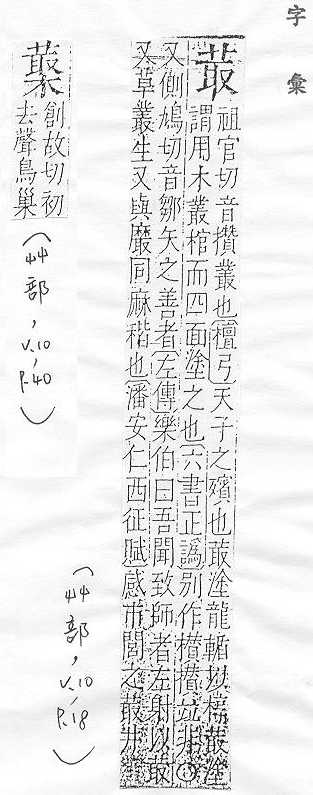 字彙
菆
祖官切音攢叢也(檀弓)天子之殯也菆塗龍輴以槨叢塗
謂用木叢棺而四面塗之也(六書正譌)別作欑攢並非〇
又側鳩切音鄒矢之善者(左傳)樂伯曰吾聞致師者左射以菆
又草叢生又與黀同麻稭也(潘安仁西征賦)感市閭之菆井
(艸部, V.10, P.18)
創故切初
去聲鳥巢
(艸部, V.10, P.40)